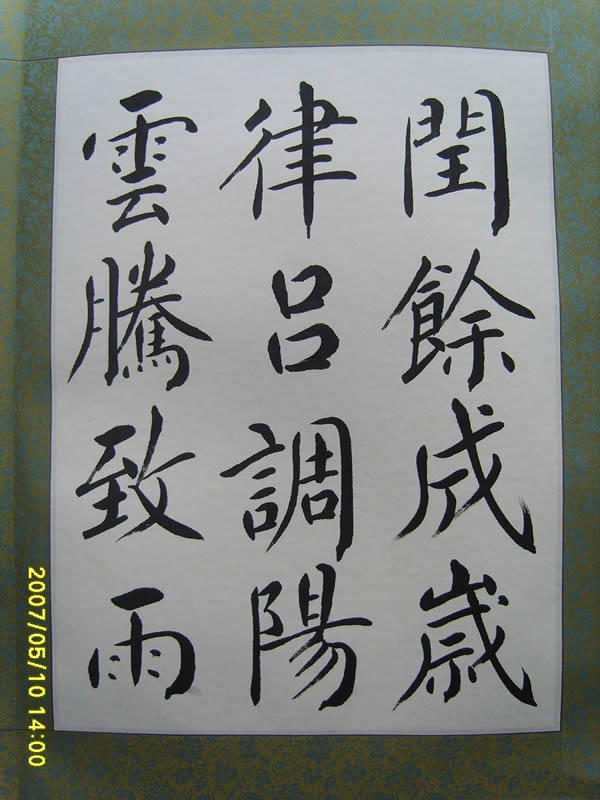 閏餘成歲
律呂調陽
雲騰致雨
2007/05/10 14:00